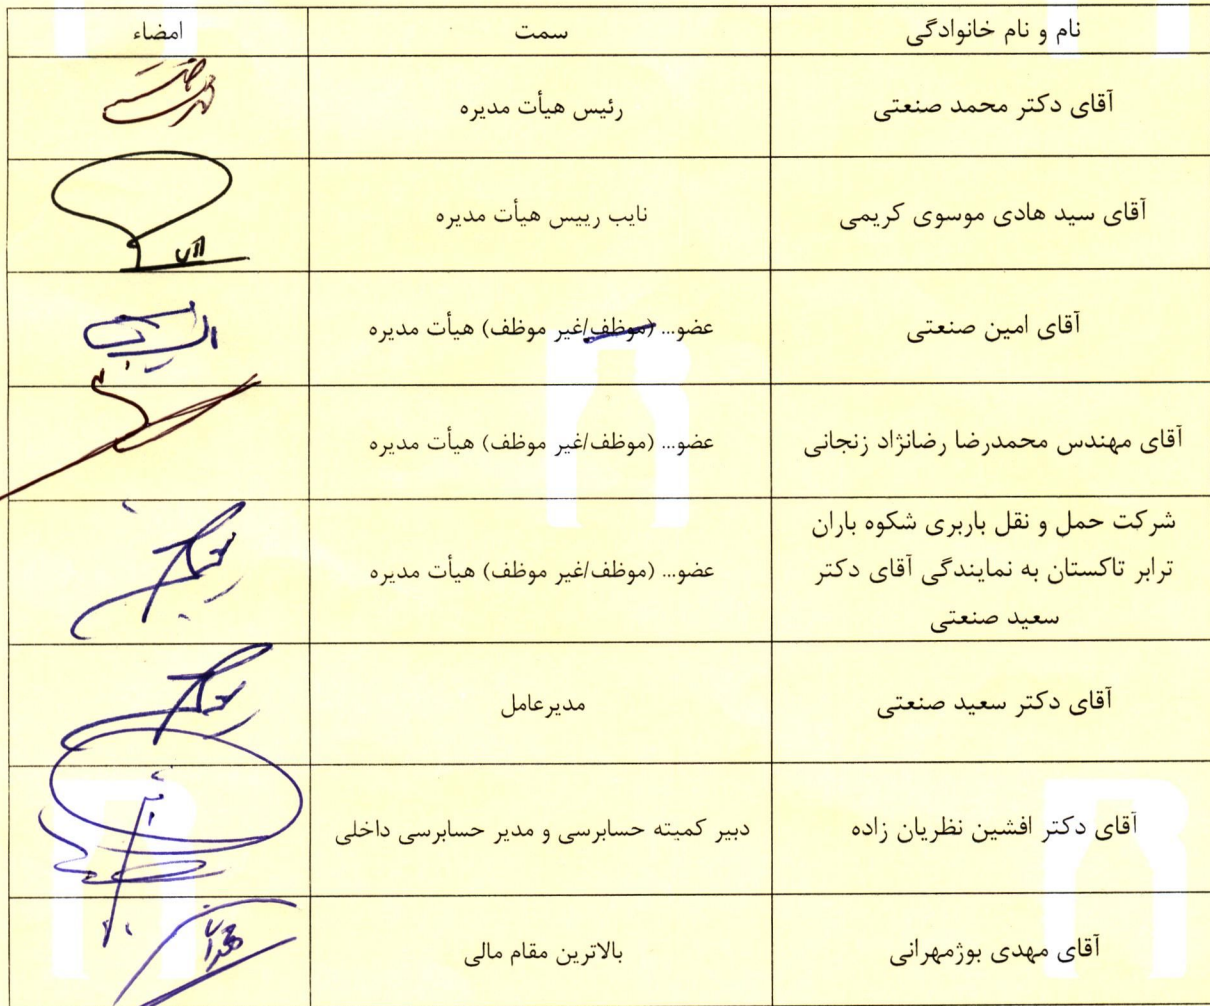 نام و نام خانوادگی سمت امضاء
آقای دکتر محمد صنعتی رئیس هیأت مدیره
آقای سید هادی موسوی کریمی نایب رییس هیأت مدیره
آقای امین صنعتی عضو... (موظف/غیر موظف) هیأت مدیره
آقای مهندس محمدرضا رضانژاد زنجانی عضو... (موظف/غیر موظف) هیأت مدیره
شرکت حمل و نقل باربری شکوه باران
ترابر تاکستان به نمایندگی آقای دکتر
سعید صنعتی
عضو... (موظف/غیر موظف) هیأت مدیره
آقای دکتر سعید صنعتی مدیرعامل
آقای دکتر افشین نظریان زاده دبیر کمیته حسابرسی و مدیر حسابرسی داخلی
آقای مهدی بوژمهرانی بالاترین مقام مالی